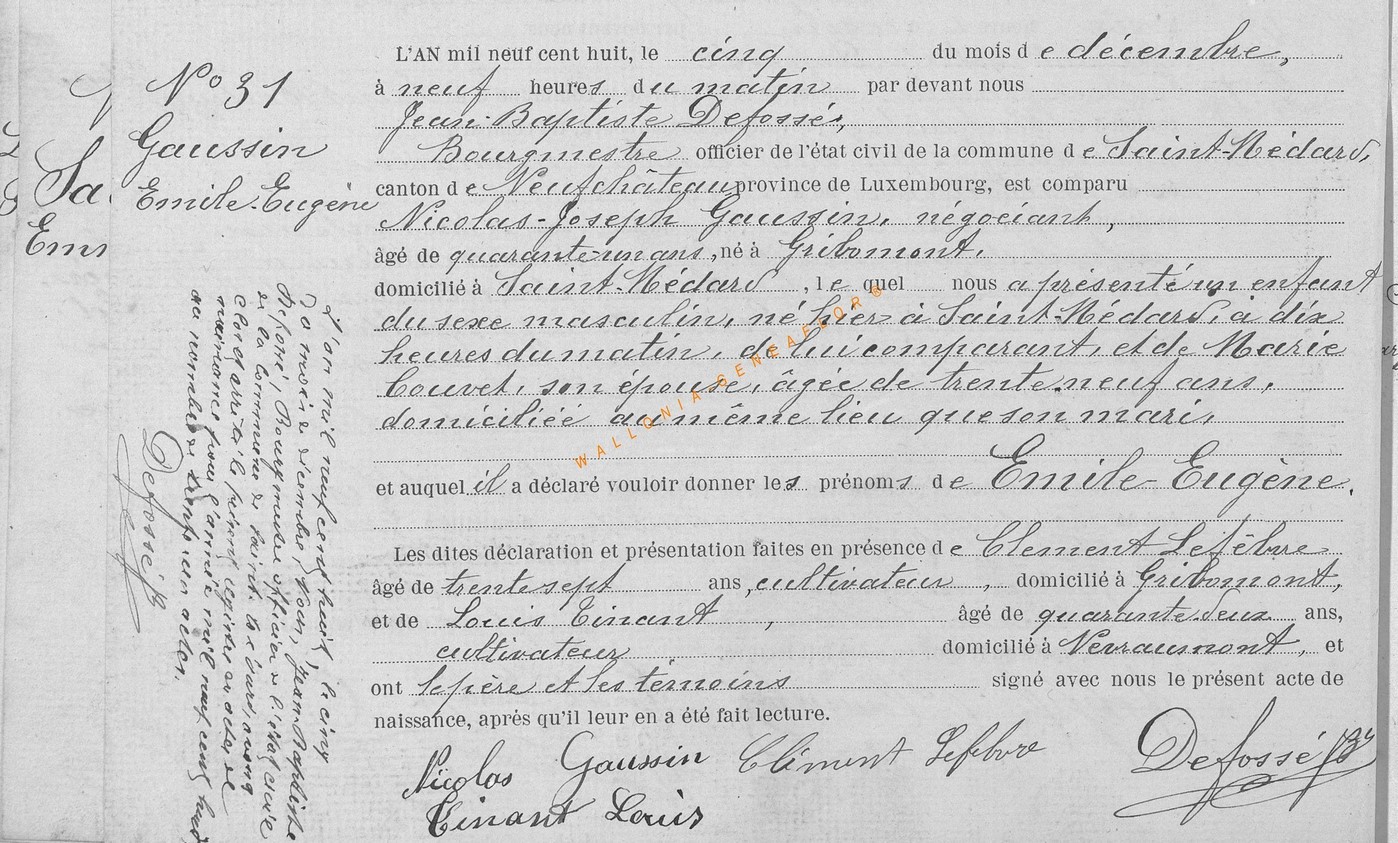 N° 31
Gaussin
Emile-Eugène
L'AN mil neuf cent huit, le cinq du mois de décembre,
à neuf heures du matin par devant nous
Jean-Baptiste Defossé,
Bourgmestre officier de l'état civil de la commune de Saint-Médard,
canton de Neufchâteau province de Luxembourg, est comparu
Nicolas-Joseph Gaussin, négociant,
âgé de quarante-un ans, né à Gribomont,
domicilié à Saint-Médard, lequel nous a présenté un enfant
du sexe masculin, né hier à Saint-Médard, à dix
heures du matin, de lui comparant, et de Marie
Couvet, son épouse, âgée de trente-neuf ans,
domiciliée au même lieu que son mari,
et auquel il a déclaré vouloir donner les prénoms de Emile-Eugène.
Les dites déclaration et présentation faites en présence de Clement Lefêbvre
âgé de trente sept ans, cultivateur, domicilié à Gribomont,
et de Louis Tinant, âgé de quarante-deux ans,
cultivateur domicilié à Nevraumont, et
ont le père et les témoins signé avec nous le présent acte de
naissance, après qu'il leur en a été fait lecture.
Nicolas Gaussin Clément Lefebvre Defossé JB
Tinant Louis
L'an mil neuf cent huit, le cinq
du mois de décembre, nous, Jean Baptiste
Defossé, Bourgmestre officier de l'état civil
de la commune de Saint-Médard, avons
clos et arrêté le présent registre aux actes de
naissance pour l'année mil neuf cent huit
au nombre de trente un actes.
Defossé JB
Sa
Em
WALLONIA GENEAFDOR ©